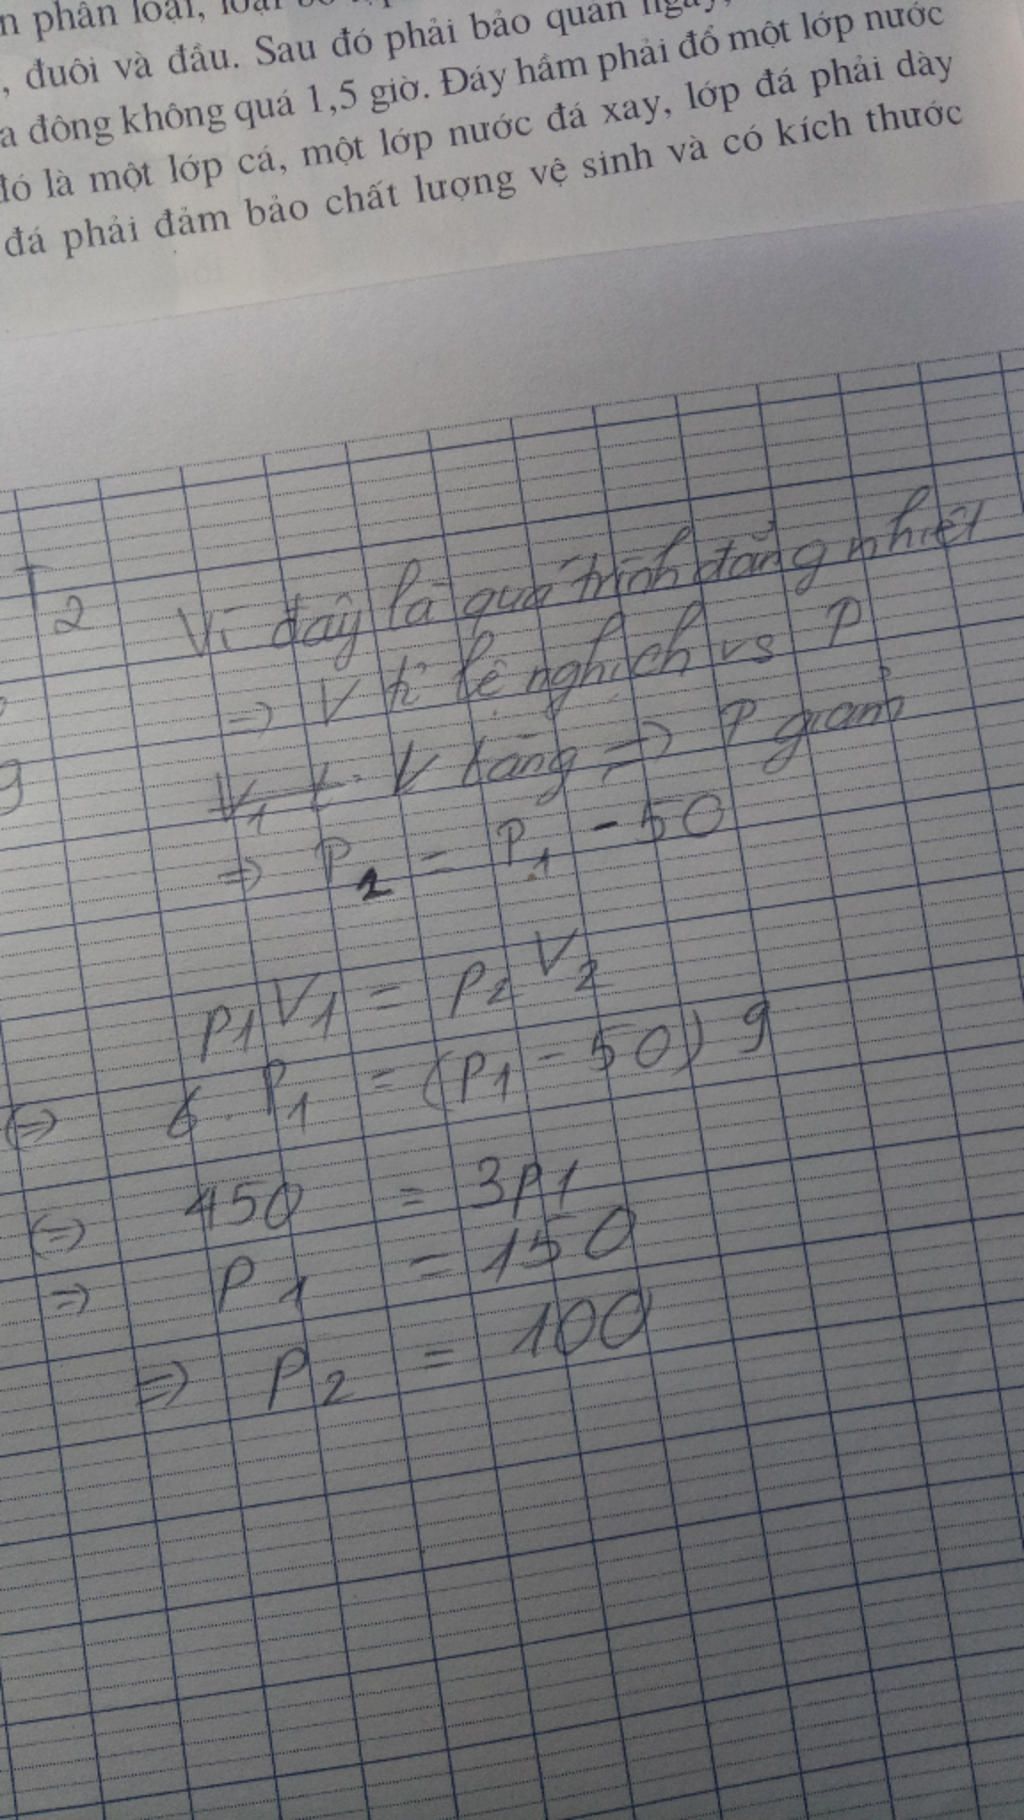 n phân loại, loại
, đuôi và đầu. Sau đó phải bảo quản ngay,
a đông không quá 1,5 giờ. Đáy hầm phải đổ một lớp nước
đó là một lớp cá, một lớp nước đá xay, lớp đá phải dày
đá phải đảm bảo chất lượng vệ sinh và có kích thước
2 Vì đây là quá trình đẳng nhiệt
=> V tỉ lệ nghịch vs P
V1 t. V tăng => P giảm
=> P2 = P1 - 50
P1V1 = P2V2
<=> 6. P1 = (P1 - 50) 9
<=> 450 = 3P1
=> P1 = 150
=> P2 = 100